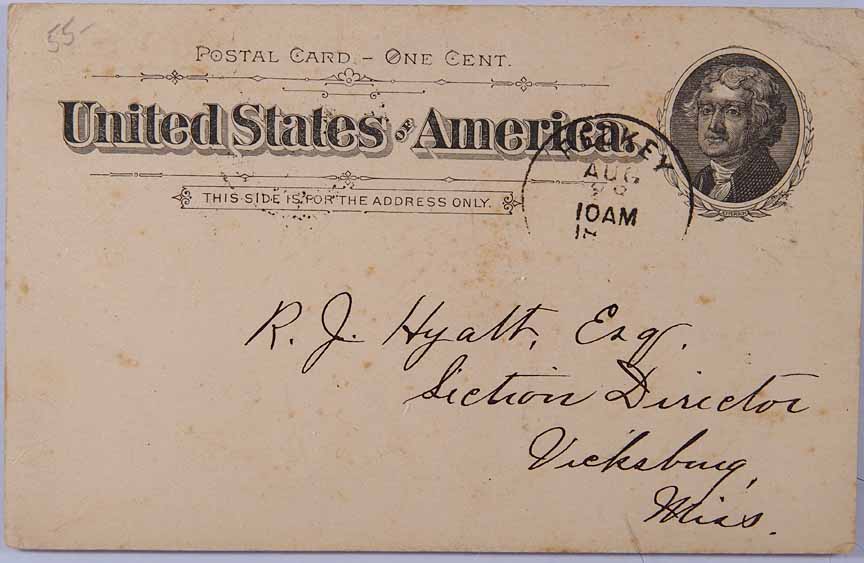 55-
POSTAL CARD - ONE CENT.
United States OF America.
THIS SIDE IS FOR THE ADDRESS ONLY.
AUG
10AM
R. J. Hyatt, Esq.
Section Director
Vicksburg,
Miss.